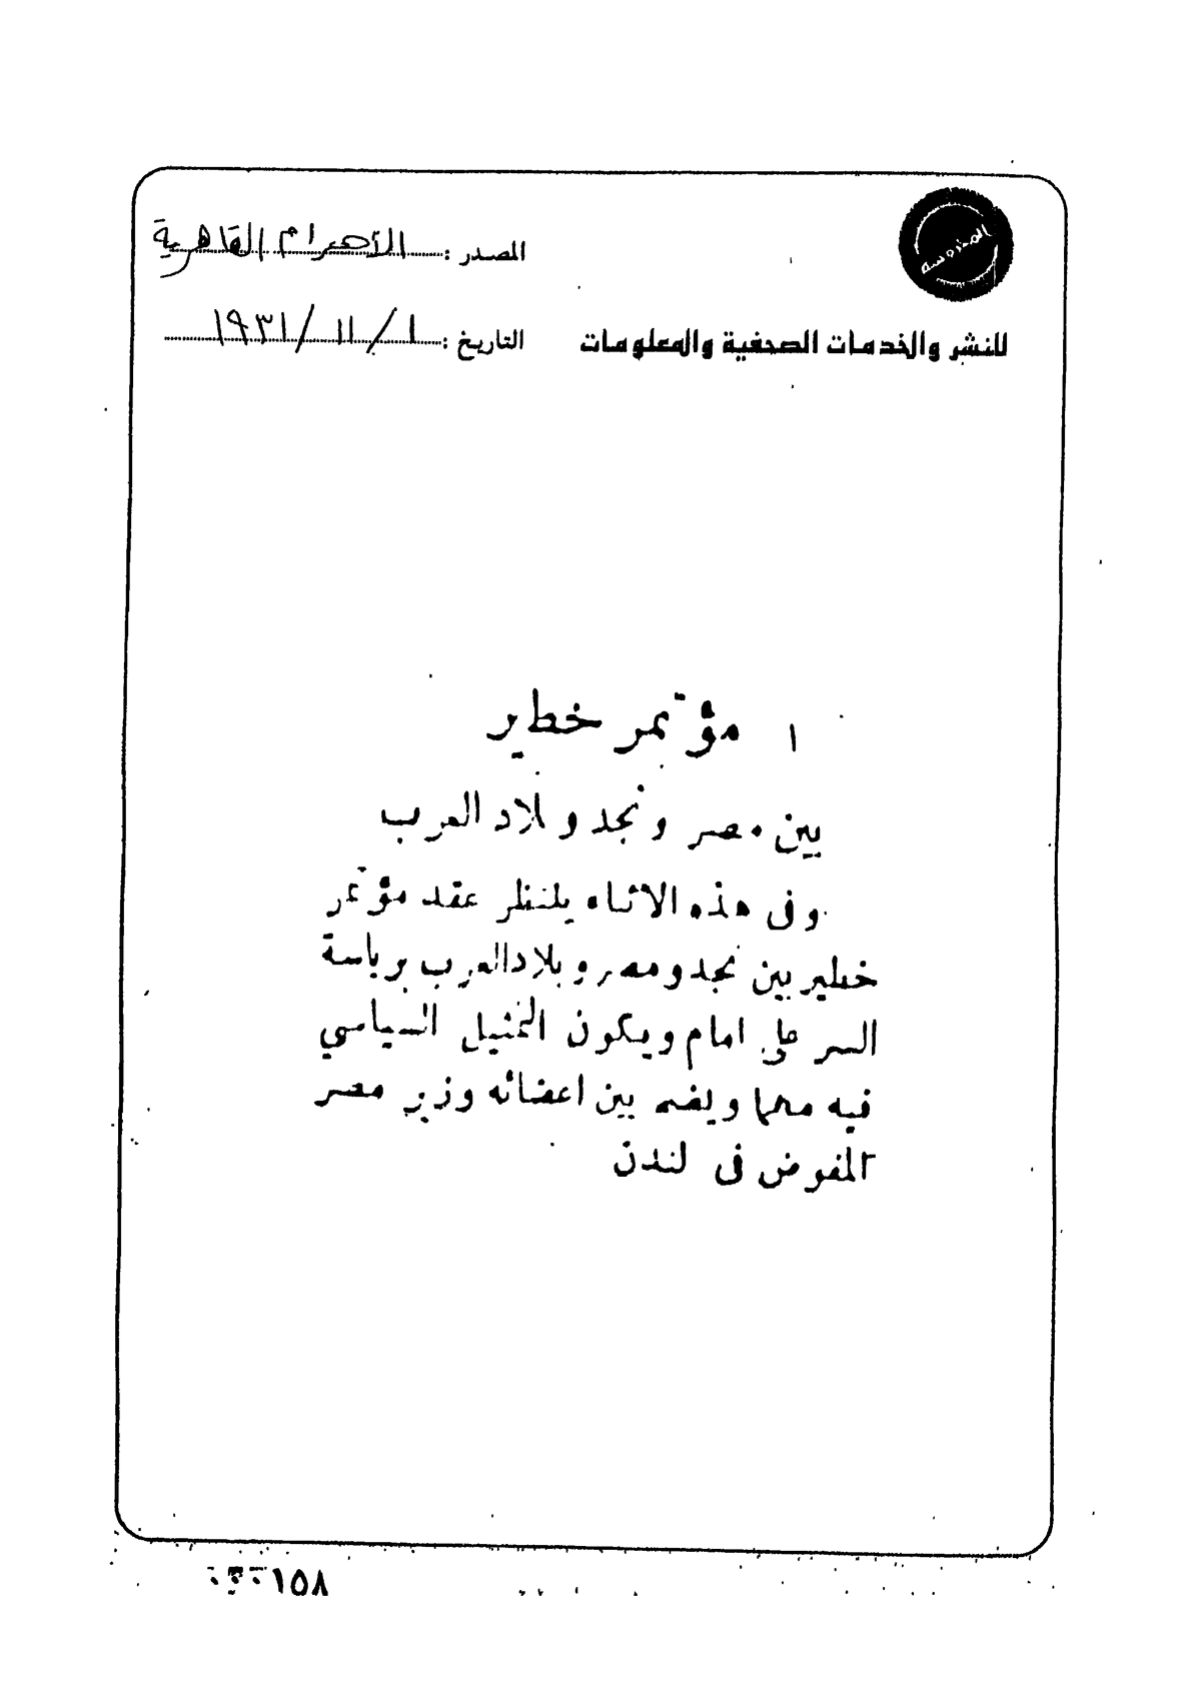 المحروسة
المصدر : الأهرام القاهرية
للنشر والخدمات الصحفية والمعلومات
التاريخ : ١ / ١١ / ١٩٣١
مؤتمر خطير
بين مصر ونجد وبلاد العرب
وفى هذه الاثناء ينتظر عقد مؤتمر
خطير بين نجد ومصر وبلاد العرب برياسة
السر على امام ويكون التمثيل السياسي
فيه مهما ويضم بين اعضائه وزير مصر
المفوض فى لندن
١٥٨